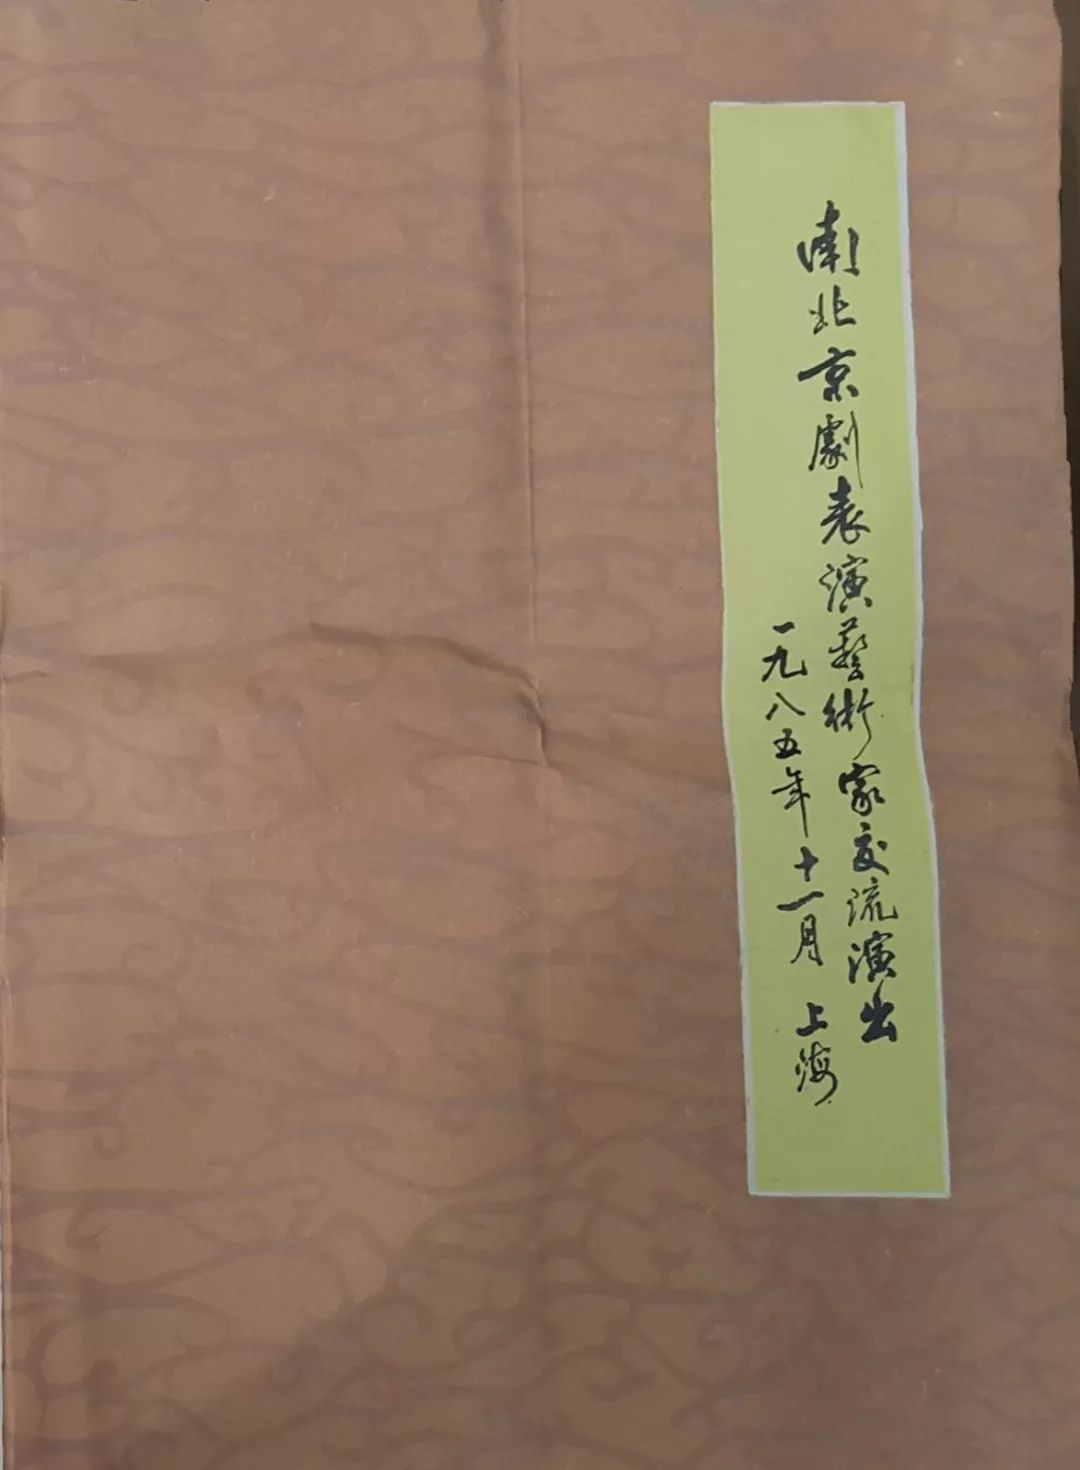 南北京劇表演藝術家交流演出
一九八五年十一月 上海